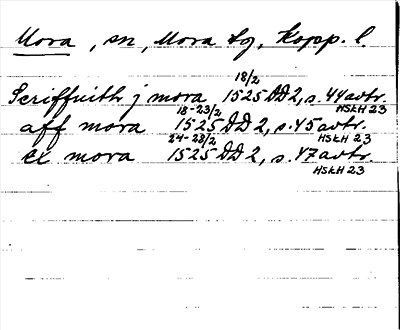 Mora, sn, Mora tg, Kopp. l.
18/2
Scriffuith j mora 1525 DD 2, s. 44 avtr.
HSkH 23
18-23/2
aff mora 1525 DD 2, s. 45 avtr.
HSkH 23
24-28/2
ex mora 1525 DD 2, s. 47 avtr.
HSkH 23